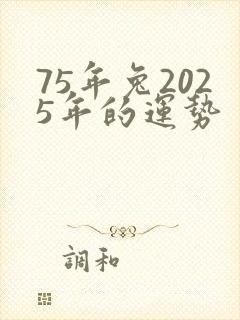 75年兔202
5年的運势
調和